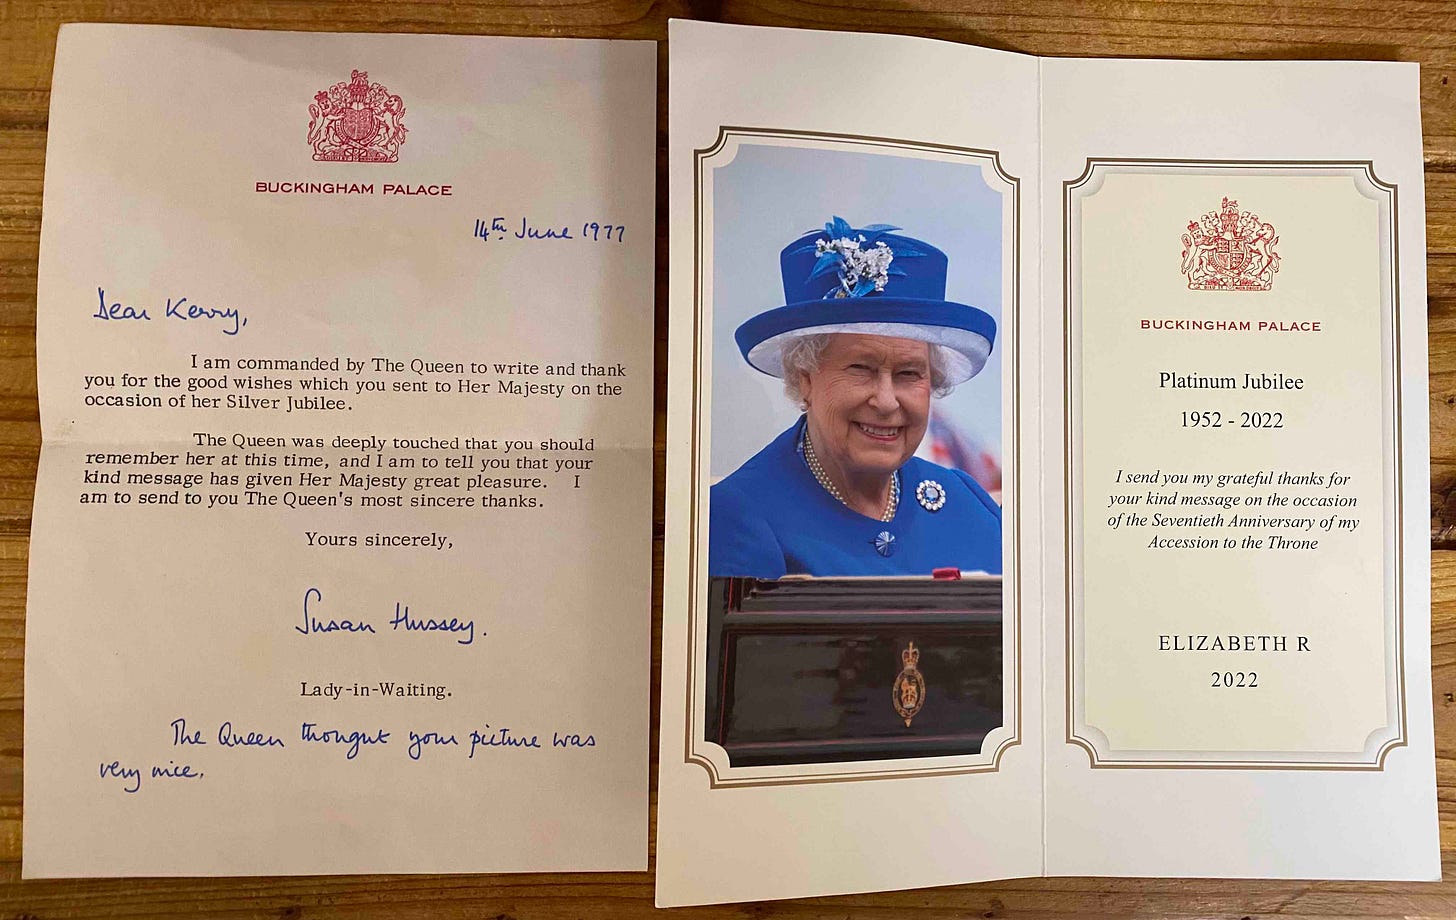 BUCKINGHAM PALACE
14th June 1977
Dear Kerry,
I am commanded by The Queen to write and thank
you for the good wishes which you sent to Her Majesty on the
occasion of her Silver Jubilee.
The Queen was deeply touched that you should
remember her at this time, and I am to tell you that your
kind message has given Her Majesty great pleasure. I
am to send to you The Queen's most sincere thanks.
Yours sincerely,
Susan Hussey.
Lady-in-Waiting.
The Queen thought your picture was
very nice.
BUCKINGHAM PALACE
Platinum Jubilee
1952 - 2022
I send you my grateful thanks for
your kind message on the occasion
of the Seventieth Anniversary of my
Accession to the Throne
ELIZABETH R
2022